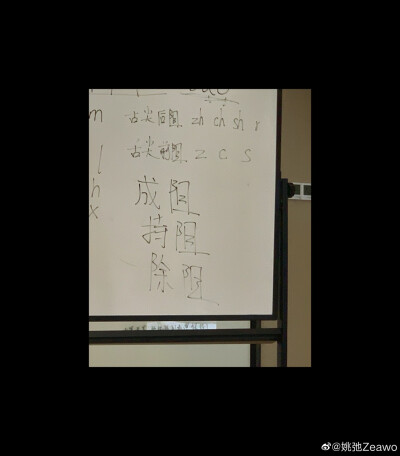 m 舌尖后阻 zh ch sh r
l 舌尖前阻 z c s
h 成阻
x 持阻
除阻
@姚弛Zeawo